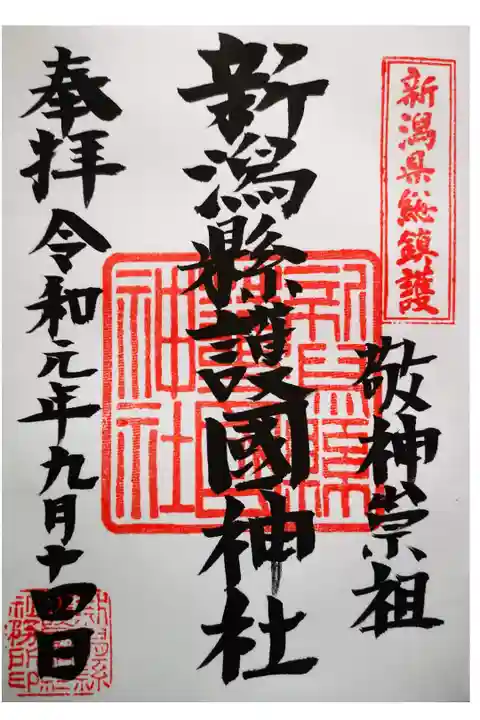 新潟県総鎮護
敬神崇祖
新潟縣護國神社
奉拝
令和元年九月十四日
社務所印